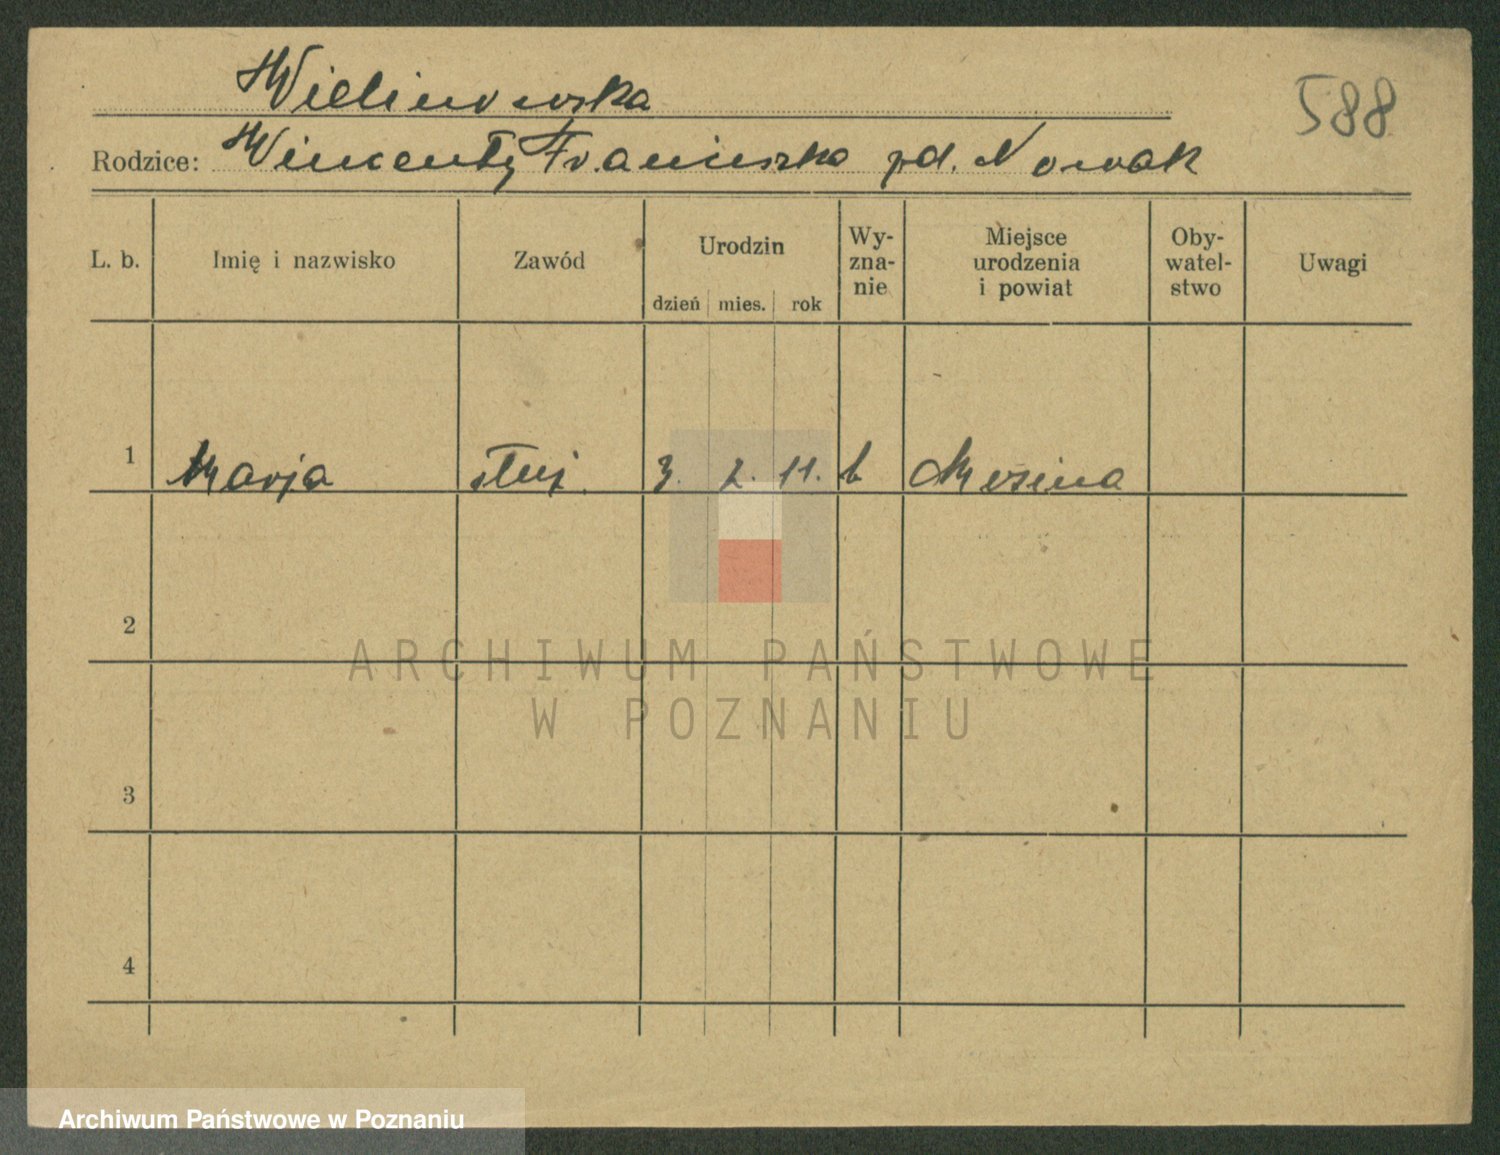 Wielinowska
588
Rodzice: Wincenty Franciszka pd. Nowak
L. b. Imię i nazwisko Zawód Urodzin dzień mies. rok Wy-zna-nie Miejsce urodzenia i powiat Oby-watel-stwo Uwagi
1 Marja służ. 3. 2. 11. k Mosina
2
ARCHIWUM PAŃSTWOWE
W POZNANIU
3
4
Archiwum Państwowe w Poznaniu